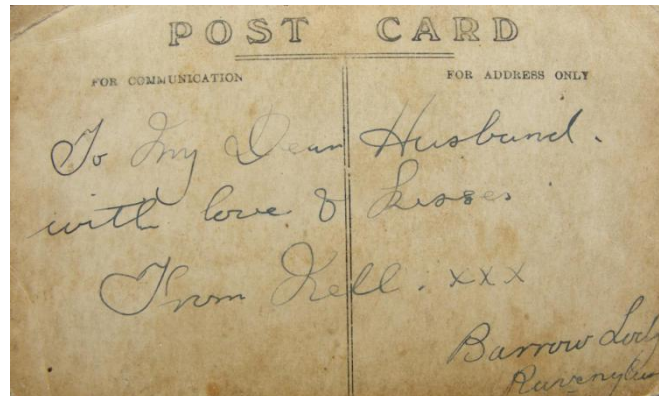 POST CARD
FOR COMMUNICATION
FOR ADDRESS ONLY
To My Dear Husband.
with love & kisses.
From Nell. xxx
Barrow